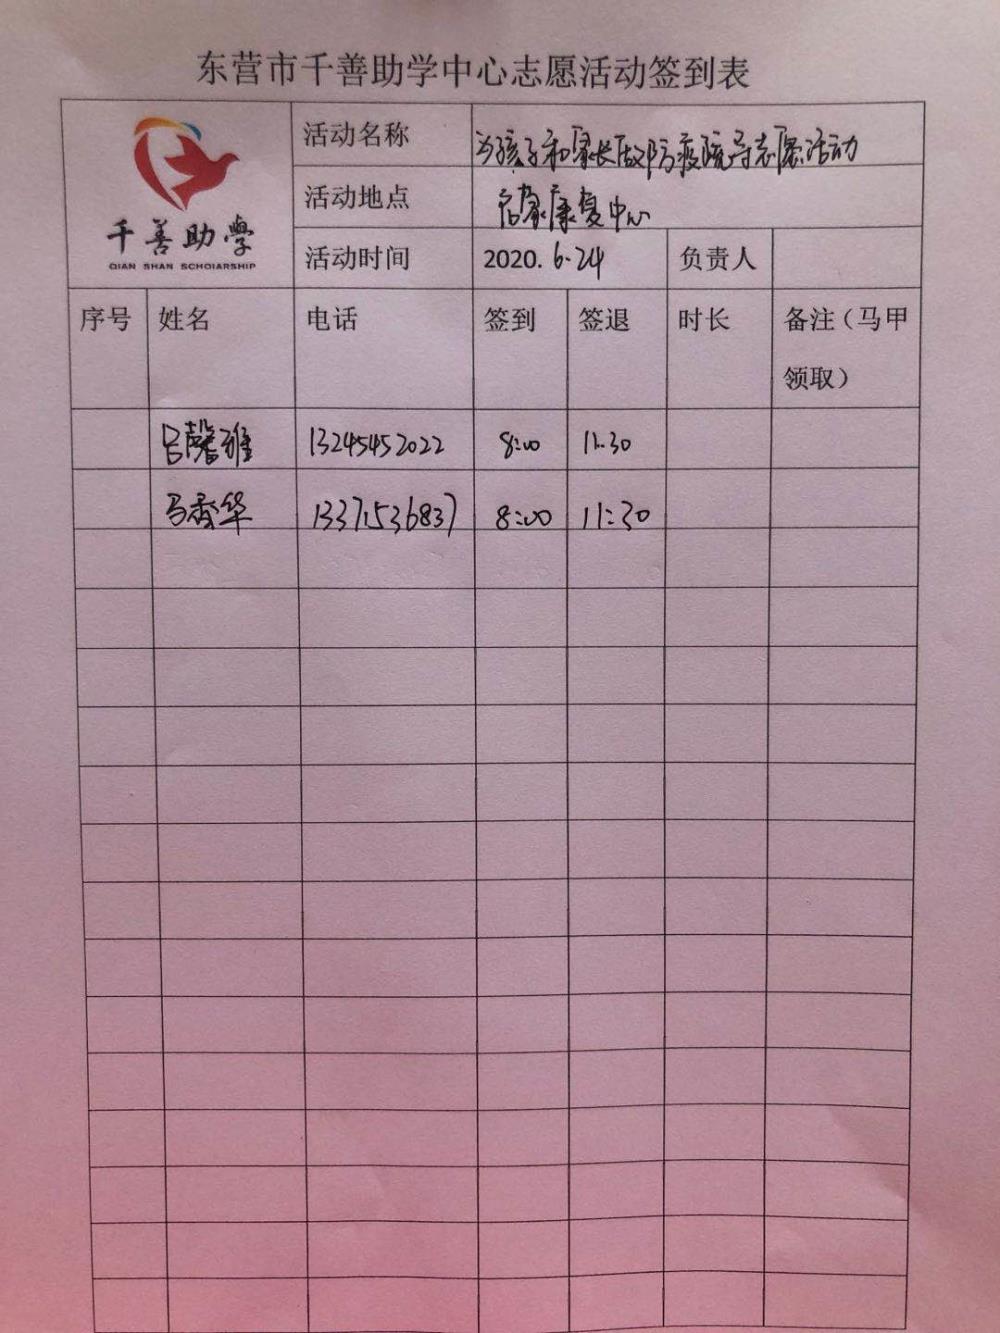 东营市千善助学中心志愿活动签到表
千善助学
QIAN SHAN SCHOIARSHIP
活动名称 为孩子和家长做防疫疏导志愿活动
活动地点 启馨康复中心
活动时间 2020. 6.24 负责人
序号 姓名 电话 签到 签退 时长 备注（马甲
领取）
吕馨雅 13245452022 8:00 11:30
马秀华 13371536837 8:00 11:30